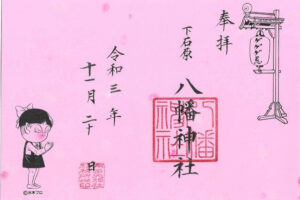 奉拝
下石原
八幡神社
令和三年
十一月二十日
©水木プロ